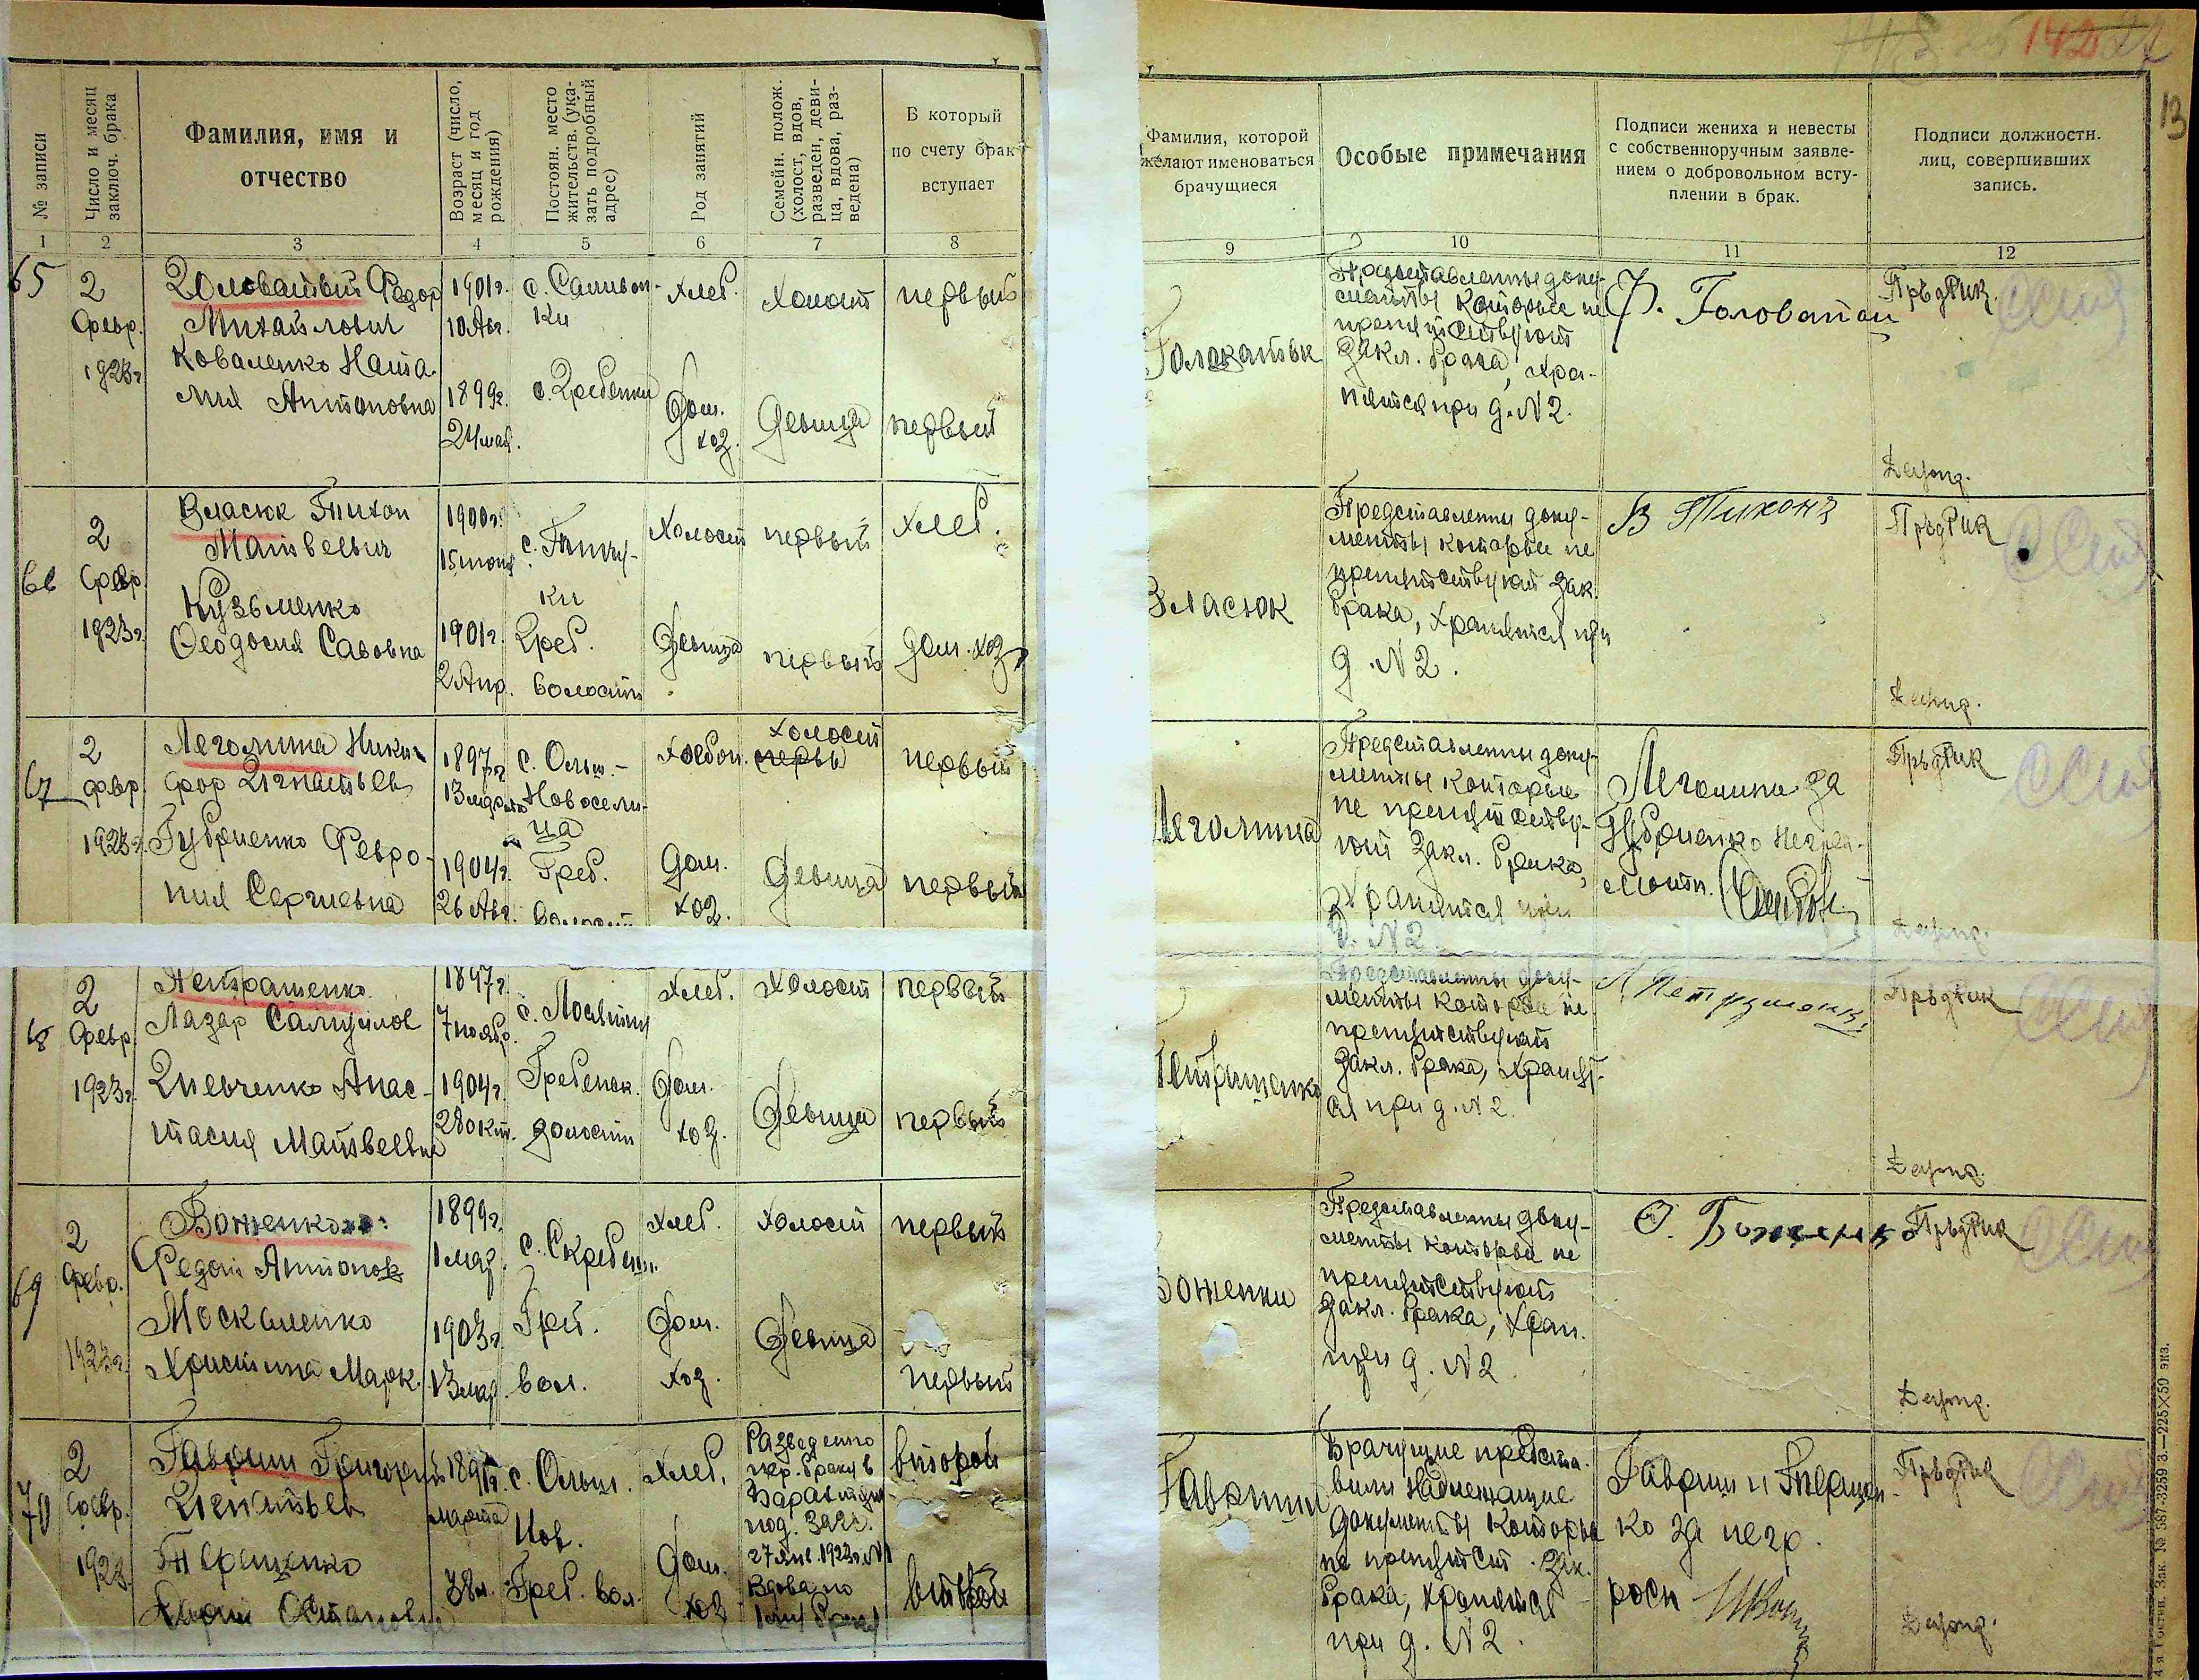 142
13
№ записи
Число и месяц
заключ. брака
Фамилия, имя и
отчество
Возраст (число,
месяц и год
рождения)
Постоян. место
жительств. (ука-
зать подробный
адрес)
Род занятий
Семейн. полож.
(холост, вдов,
разведен, деви-
ца, вдова, раз-
ведена)
В который
по счету брак
вступает
Фамилия, которой
желают именоваться
брачущиеся
Особые примечания
Подписи жениха и невесты
с собственноручным заявле-
нием о добровольном всту-
плении в брак.
Подписи должностн.
лиц, совершивших
запись.
1 2 3 4 5 6 7 8 9 10 11 12
65
2
Февр.
1923г.
Головатый Федор
Михайлович
Коваленко Ната-
лия Антоновна
1901г.
10 Авг.
1899г.
24 мая.
с. Саливон-
ки
с. Гребенки
хлеб.
дом.
хоз.
холост
девица
первый
первый
Представленны доку-
менты которые не
препятствуют
закл. брака, хра-
нятся при д. N 2.
Ф. Головатый
ПрѣдРик.
66
2
Февр.
1923г.
Власюк Тихон
Матвеевич
Кузьменко
Феодосия Савовна
1900г.
15 июня
1901г.
2 Апр.
с. Пинчу-
ки
Греб.
волости
Холост
девица
первый
первый
хлеб.
дом. хоз.
Власюк
Представленны доку-
менты которые не
препятствуют зак.
брака, хранятся при
д. N 2.
В Тихонъ
ПрѣдРик
67
2
февр.
1923г.
Леголина Ники-
фор Игнатьев
Губриенко Февро-
ния Сергиевна
1897г.
1904г.
26 Авг.
с. Ольш.-
Новосели-
ца
Греб.
волости
хлебоп.
дом.
хоз.
холост
девица
первый
первый
Леголина
Представленны доку-
менты которые
не препятству-
ют закл. брака,
хранятся при
д. N 2.
Леголина за
Губриенко неграм-
мотн.
ПрѣдРик
68
2
Февр.
1923г.
Петрашенко
Лазар Самуилов
Анас-
тасия Матвеевна
1897г.
7 ноябр.
1904г.
28 окт.
Гребенск.
волости
Хлеб.
дом.
хоз.
холост
девица
первый
первый
Петрашенко
Представленны доку-
менты которые не
препятствуют
закл. брака, хранят-
ся при д. N 2.
ПрѣдРик
69
2
Февр.
1923г.
Боженко
Федот Антонов
Москаленко
Христина Марк.
1899г.
1 мар.
1903г.
13 мар.
Греб.
вол.
хлеб.
дом.
хоз.
холост
девица
первый
первый
Боженки
Представленны доку-
менты которые не
препятствуют
закл. брака, хран.
при д. N 2
Ф. Боженко
ПрѣдРик
70
2
Февр.
1923.
Гавриш Григорий
Терещенко
марта
38 л.
с. Ольш.
Нов.
Греб. вол.
хлеб.
дом.
хоз.
Разведенно
пер. браку в
27 янв. 1923г. N 1
Вдова по
второй
второй
Брачущие предста-
вили надлежащие
документы которые
не препятст. зак.
брака, хранятся
при д. N 2.
Гавриш и Терещен-
ко за негр.
росп
ПрѣдРик
4-я Гостип. Зак. № 587-3259 3.—225×50 экз.